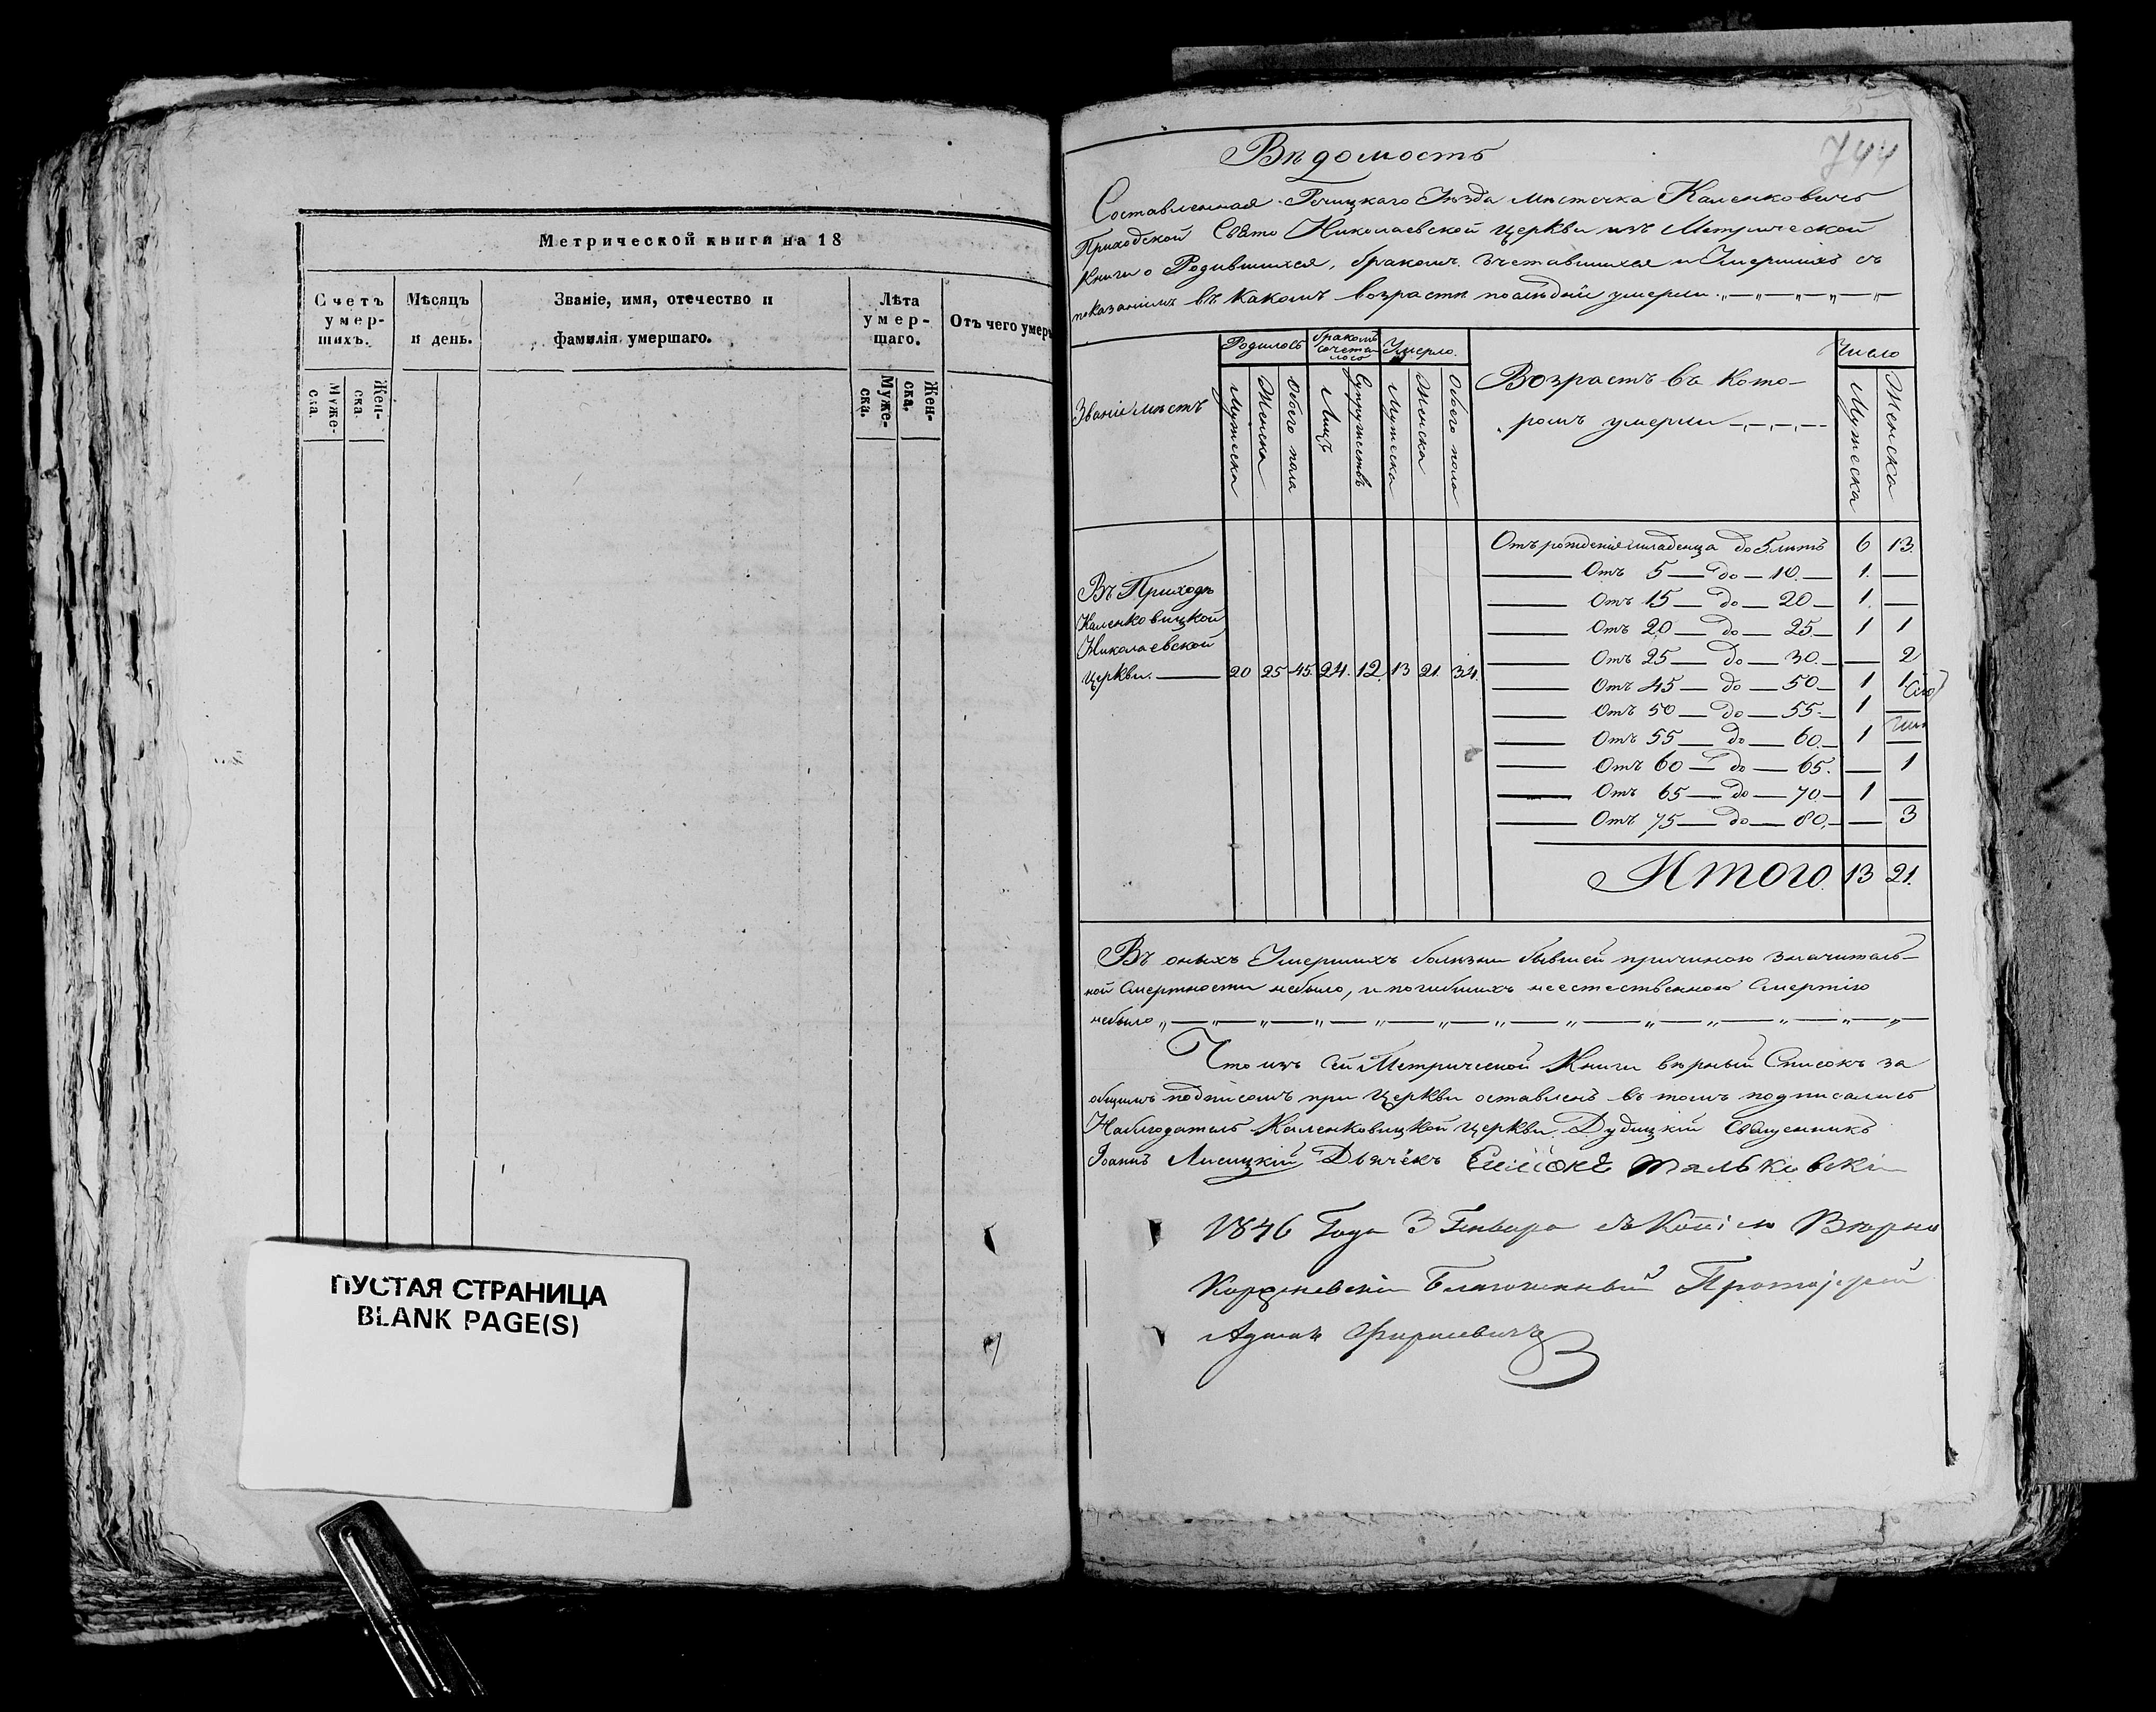 Метрической книги на 18
Счетъ умер-шихъ.
Мѣсяцъ и день.
Званіе, имя, отечество и фамилія умершаго.
Лѣта умер-шаго.
Отъ чего умеръ
Муже-ска.
Жен-ска.
Муже-ска.
Жен-ска.
ПУСТАЯ СТРАНИЦА
BLANK PAGE(S)
744
Вѣдомость
Составленная Речицкаго Уѣзда мѣстечка Каленковичъ
Приходской Свято Николаевской церкви изъ Метрической
Книги о Родившихся, бракомъ сочетавшихся и Умершихъ съ
показаніемъ въ какомъ возрастѣ послѣдніи умерли
Званіе мѣстъ
Родилось
бракомъ сочета-лось
Умерло.
Возрастъ въ кото-
ромъ умерли
Число
Мужеска
Женска
Обоего пола
Лицъ
Супружествъ
Мужеска
Женска
Обоего пола
Мужеска
Женска
Отъ рожденія младенца до 5 лѣтъ 6 13.
Отъ 5 — до — 10. — 1. —
Отъ 15 — до — 20 — 1. —
Отъ 20 — до — 25 — 1 1
Отъ 25 — до — 30. — — 2
Отъ 45 — до — 50 — 1 1
Отъ 50 — до — 55. — 1 —
Отъ 55 — до — 60. — 1 —
Отъ 60 — до — 65. — 1
Отъ 65 — до — 70. — 1 —
Отъ 75 — до — 80. — — 3
Итого 13 21.
Въ Приходѣ
Каленковицкой
Николаевской
церкви. — 20 25 45. 24. 12. 13 21. 34.
Въ оныхъ Умершихъ болѣзни бывшей причиною значитель-
ной смертности небыло, и погибшихъ неестественною смертію
небыло
Что изъ сей Метрической Книги вѣрный Списокъ за
общимъ подписомъ при церкви оставленъ въ томъ подписались
Наблюдатель Каленковицкой церкви Дудицкій Священникъ
Іоаннъ Лисицкій Дьячекъ
1846 Года 3 Генваря съ Копіею Вѣрно
Благочинный Протоіерей
Адамъ